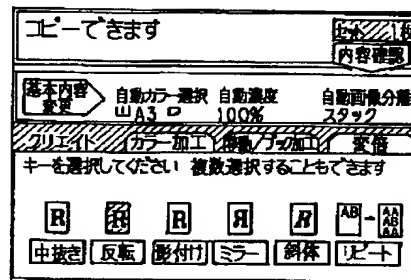 コピーできます
セット 1枚
内容確認
基本内容 自動カラー選択 自動濃度 自動画像分離
変更 A3 100% スタック
クリエイト カラー加工 移動/ブック加工 変倍
キーを選択してください 複数選択することもできます
R R R R R AB AB
AB
AA
中抜き 反転 影付け ミラー 斜体 リピート